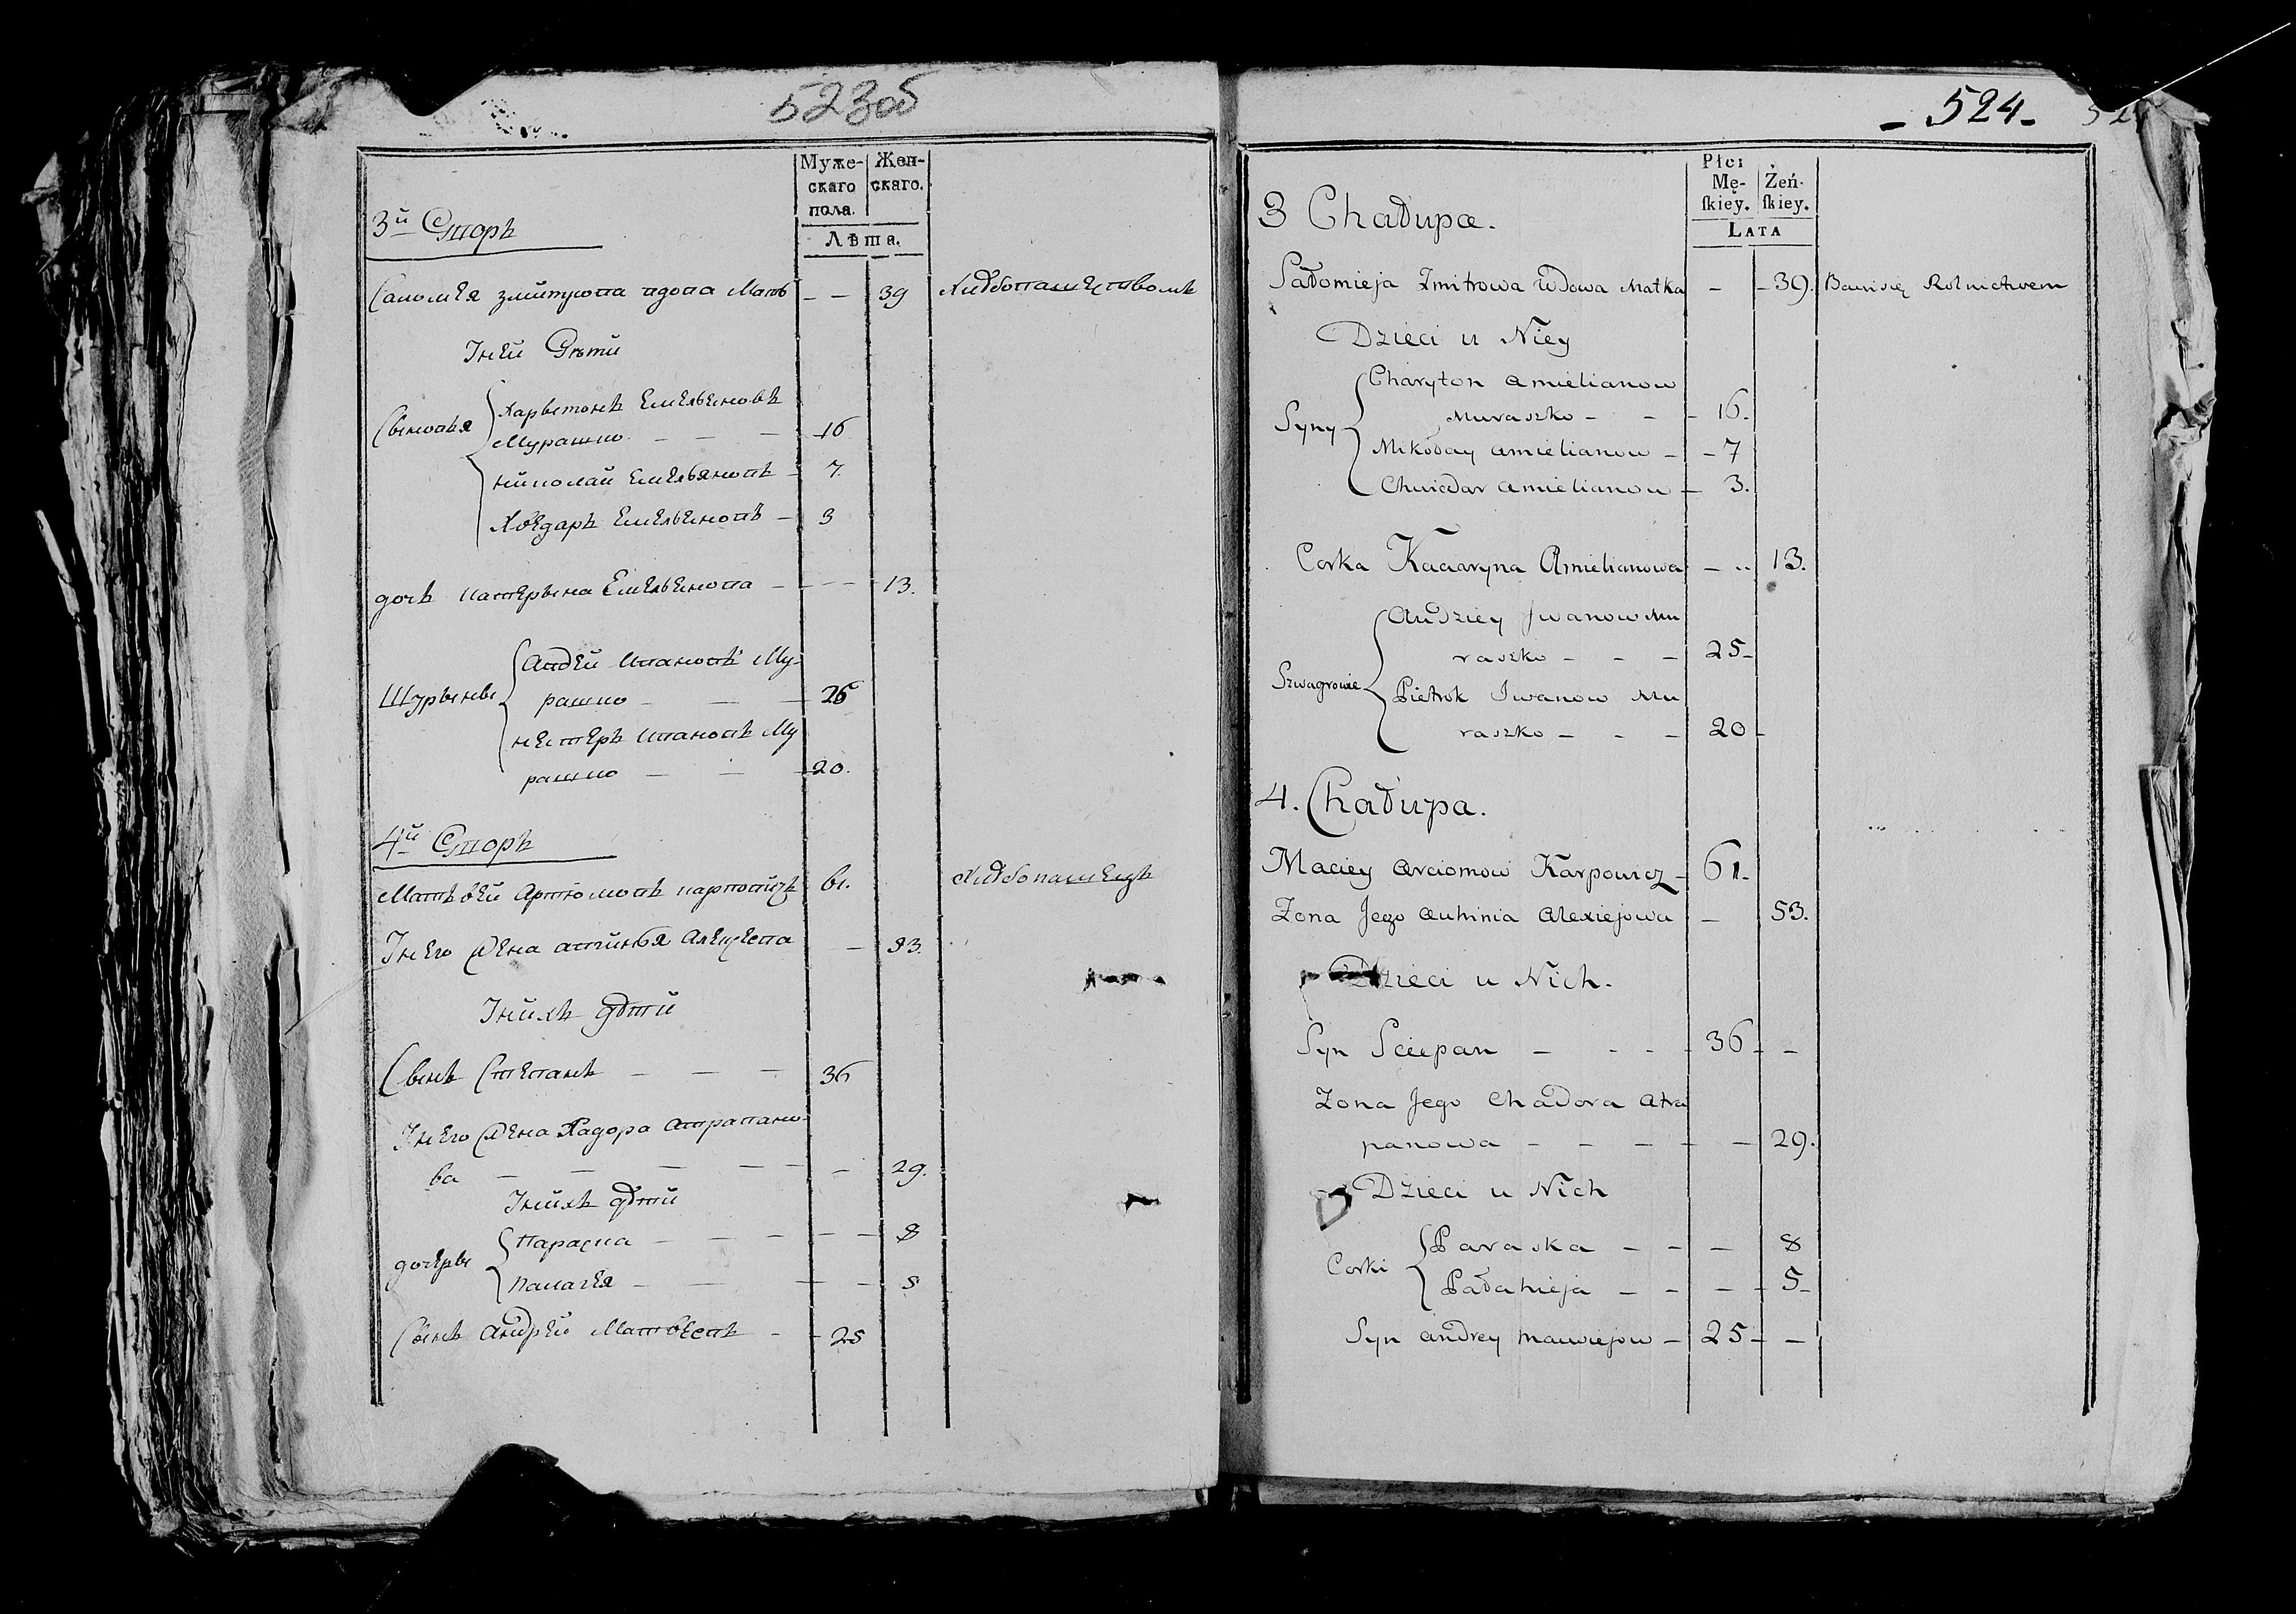 523об
Муже- Жен-
скаго скаго.
пола.
Лѣта.
3й Дворъ
Саломея Змитрова вдова Мать – – 39 Хлѣбопашествомъ
У ней Дѣти
Сыновья
Харытонъ Емельяновъ
Мурашко – – – 16
Николай Емельяновъ – 7.
Хведаръ Емельяновъ – 3
дочь Катерына Емельянова – – – 13.
Шурыны
Андей Ивановъ Му-
рашко – – – 25
Ивановъ Му
рашко – – – 20.
4й Дворъ
Матвѣй Артюмовъ Карповичъ 61. Хлѣбопашецъ
У него Жена Авгинья Алексеева – 53.
У нихъ дѣти
Сынъ Степанъ – – – 36
У него Жена Хадора Атрапано-
ва – – – – – – 29.
У нихъ дѣти
дочеры
Параска – – – – – 8
Палагея – – – – 5
Сынъ Андрей Матвеевъ – – 25
– 524 –
Płci
Mę- Żeń-
ſkiey. ſkiey.
LATA
3 Chałupa.
Sałomieja Zmitrowa Wdowa Matka – – 39. Bawi się Rolnictwem
Dzieci u Niey
Syny
Charyton Amielianow
Muraszko – – – 16.
Mikołay Amielianow – – 7
Chwiedar Amielianow – 3.
Corka Kaciaryna Amielianowa – .. 13.
Szwagrowie
Andziey Jwanow Mu
raszko – – – 25 –
Pietrok Jwanow Mu
raszko – – – 20 –
4. Chałupa.
Maciey Arciomow Karpowicz – 61.
Zona Jego Auhinia Alexiejowa – 53.
Dzieci u Nich.
Syn Sciepan – – – – 36 – –
Zona Jego Chadora Atra
panowa – – – – – 29.
Dzieci u Nich
Corki
Paraska – – – 8
Pałahieja – – – – 5 –
Syn Andrey Maciejow – 25 – –